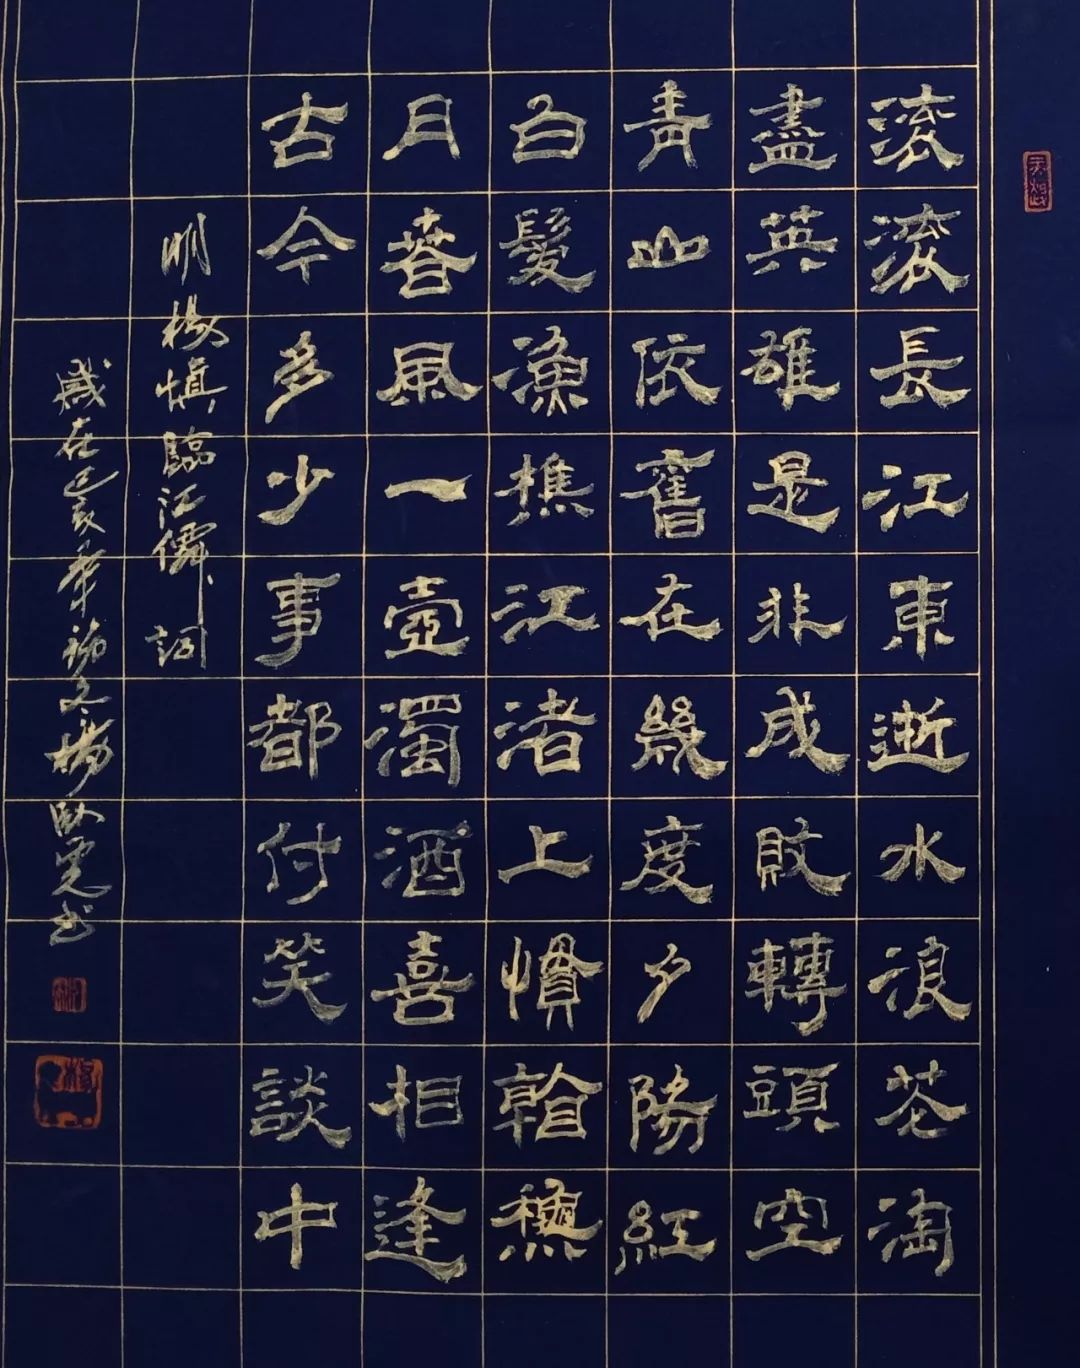 滚滚長江東逝水浪花淘
盡英雄是非成敗轉頭空
青山依舊在幾度夕陽紅
白髮漁樵江渚上慣看龝
月春風一壺濁酒喜相逢
古今多少事都付笑談中
明楊慎臨江僊詞
歲在己亥楊臥雲书